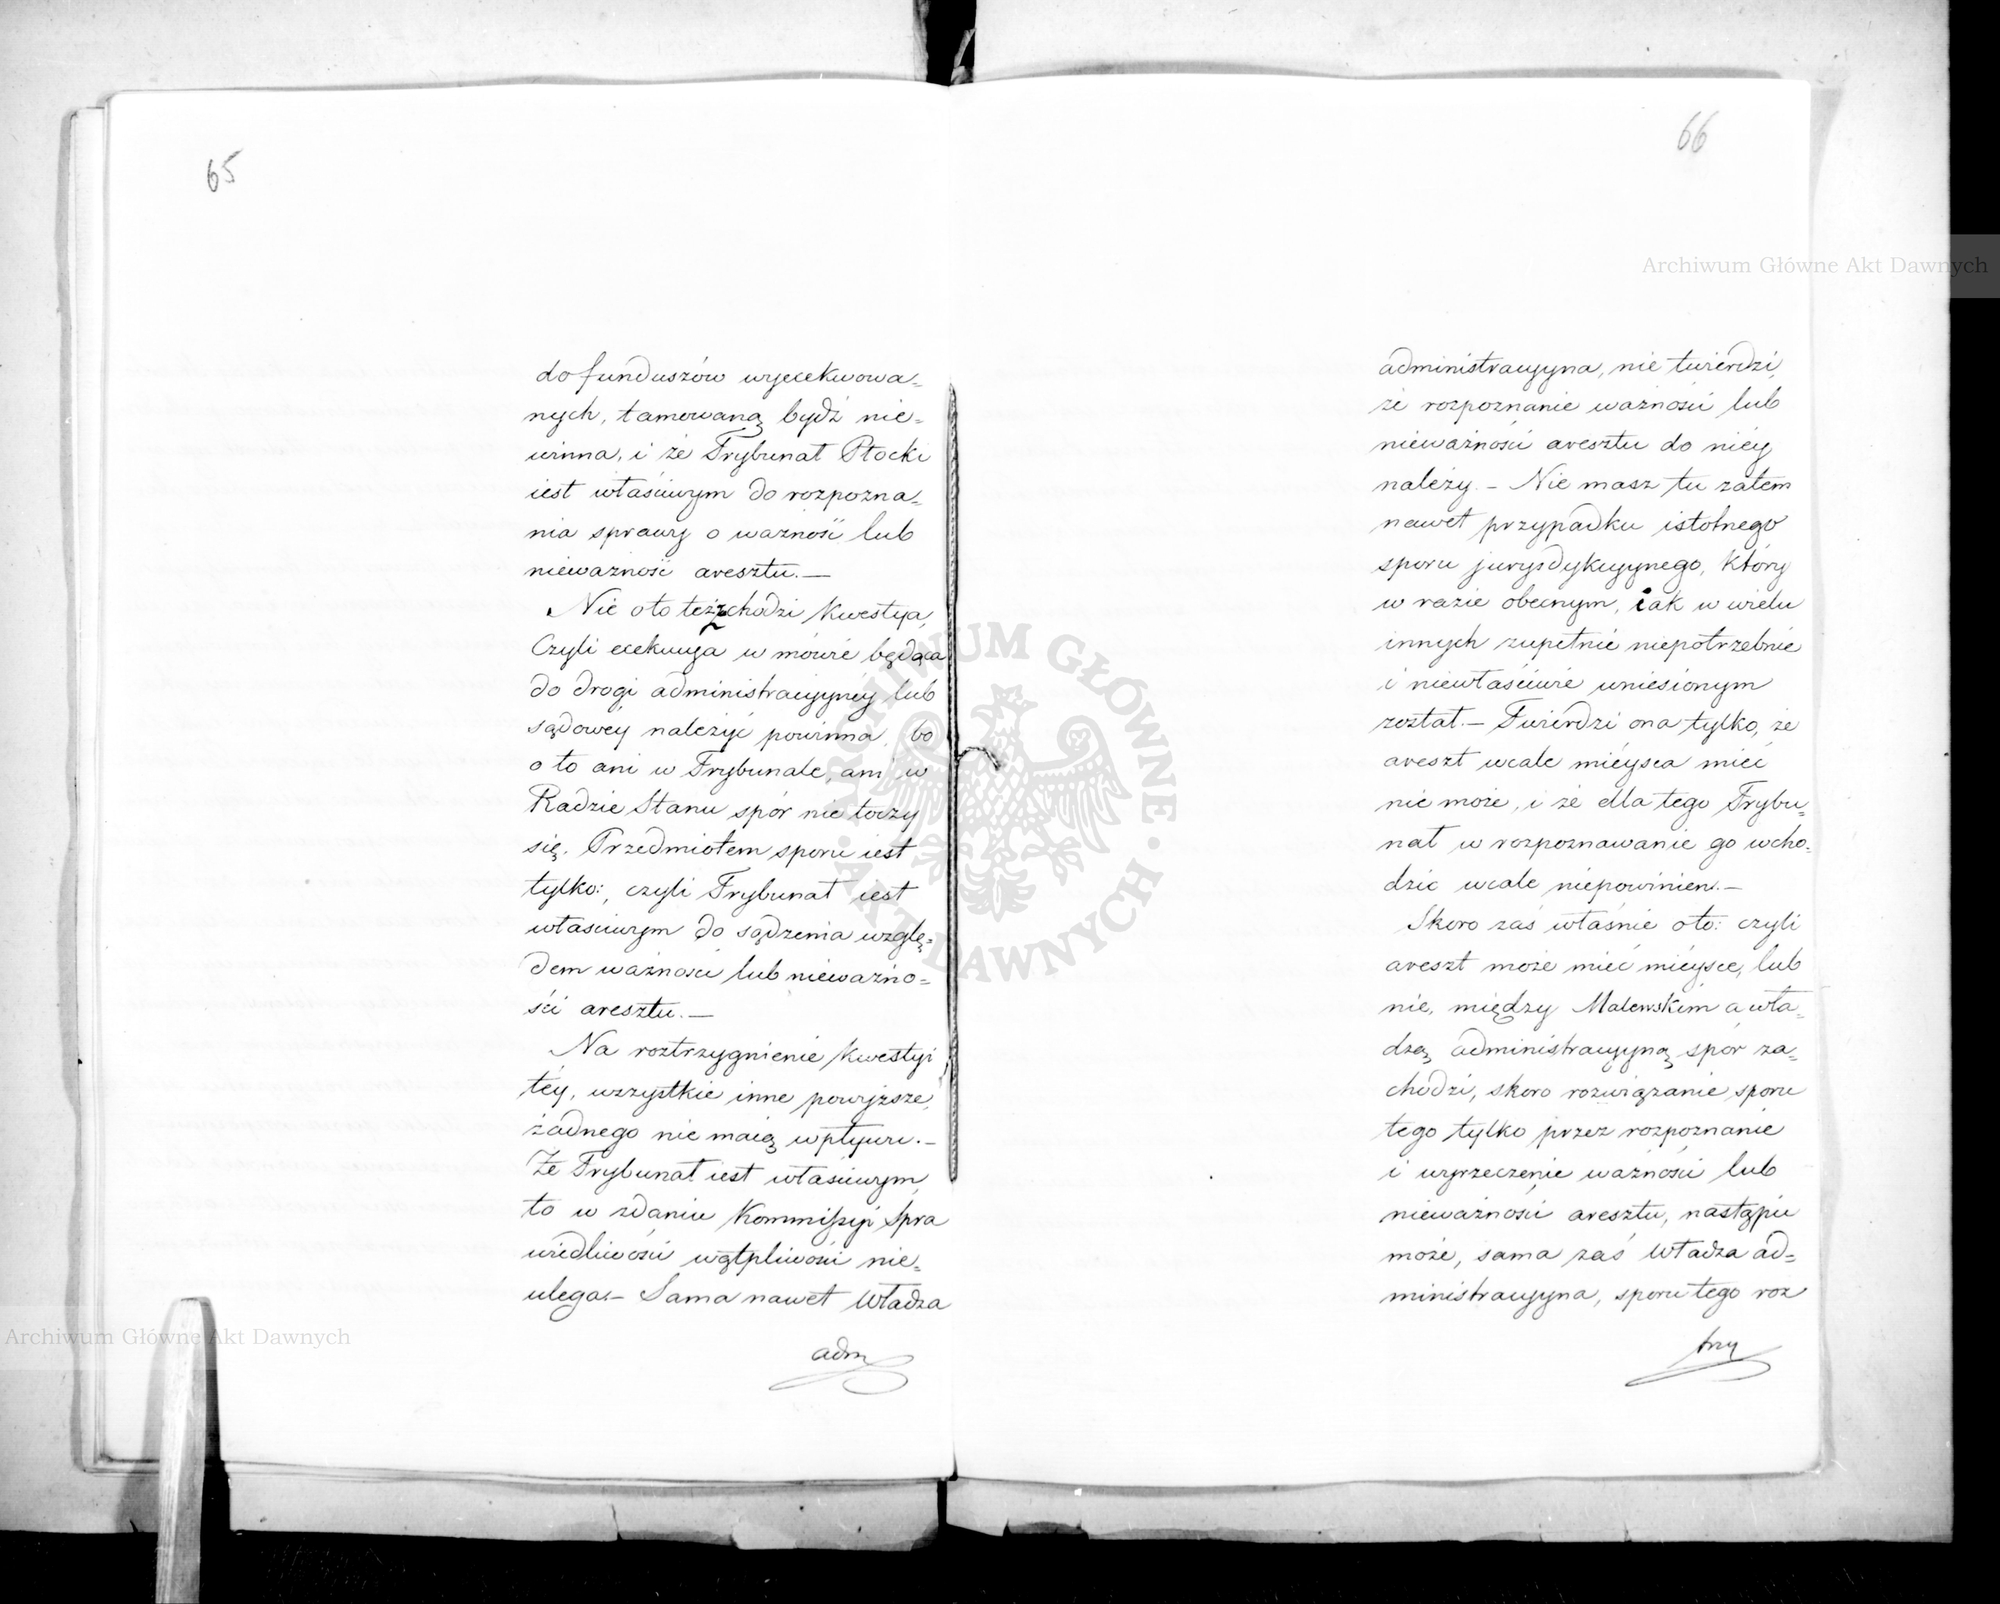 65
do funduszów wyexekwowa=
nych, tamowaną bydź nie=
winna, i że Trybunał Płocki
iest właściwym do rozpozna=
nia sprawy o ważność lub
nieważność aresztu.—
Nie oto też zchodzi kwestya,
Czyli exekucyja w mówie będąca
do drogi administracyjnéy lub
sądowéy należyć powinna, bo
o to ani w Trybunale, ani w
Radzie Stanu spór nie toczy
się. Przedmiotem sporu iest
tylko: czyli Trybunał iest
właściwym do sądzenia wzglę=
dem ważności lub nieważno=
ści aresztu.—
Na roztrzygnienie kwestyi
téy, wszystkie inne powyższe,
żadnego nie maią wpływu.—
Że Trybunał iest właściwym,
to w zdaniu Kommissyi Spra
wiedliwości wątpliwości nie=
ulega.— Sama nawet Władza
adm
66
administracyjna, nie twierdzi,
że rozpoznanie ważności lub
nieważności aresztu do niéy
należy.— Nie masz tu zatem
nawet przypadku istotnego
sporu jurysdykcyjnego, który
w razie obecnym, iak w wielu
innych zupełnie niepotrzebnie
i niewłaściwie uniesionym
został.— Twierdzi ona tylko, że
areszt wcale miéysca mieć
nie może, i że dla tego Trybu=
nał w rozpoznawanie go wcho=
dzić wcale niepowinien.—
Skoro zaś właśnie oto: czyli
areszt może mieć miéysce, lub
nie, między Malewskim a wła=
dzą administracyjną spór za=
chodzi, skoro rozwiązanie sporu
tego tylko przez rozpoznanie
i wyrzeczenie ważności lub
nieważności aresztu, nastąpić
może, sama zaś Władza ad=
ministracyjna, sporu tego roz
trzy
Archiwum Główne Akt Dawnych
Archiwum Główne Akt Dawnych
ARCHIWUM GŁÓWNE AKT DAWNYCH